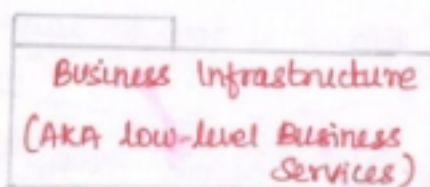 Business Infrastructure
(AKA Low-level Business
Services)